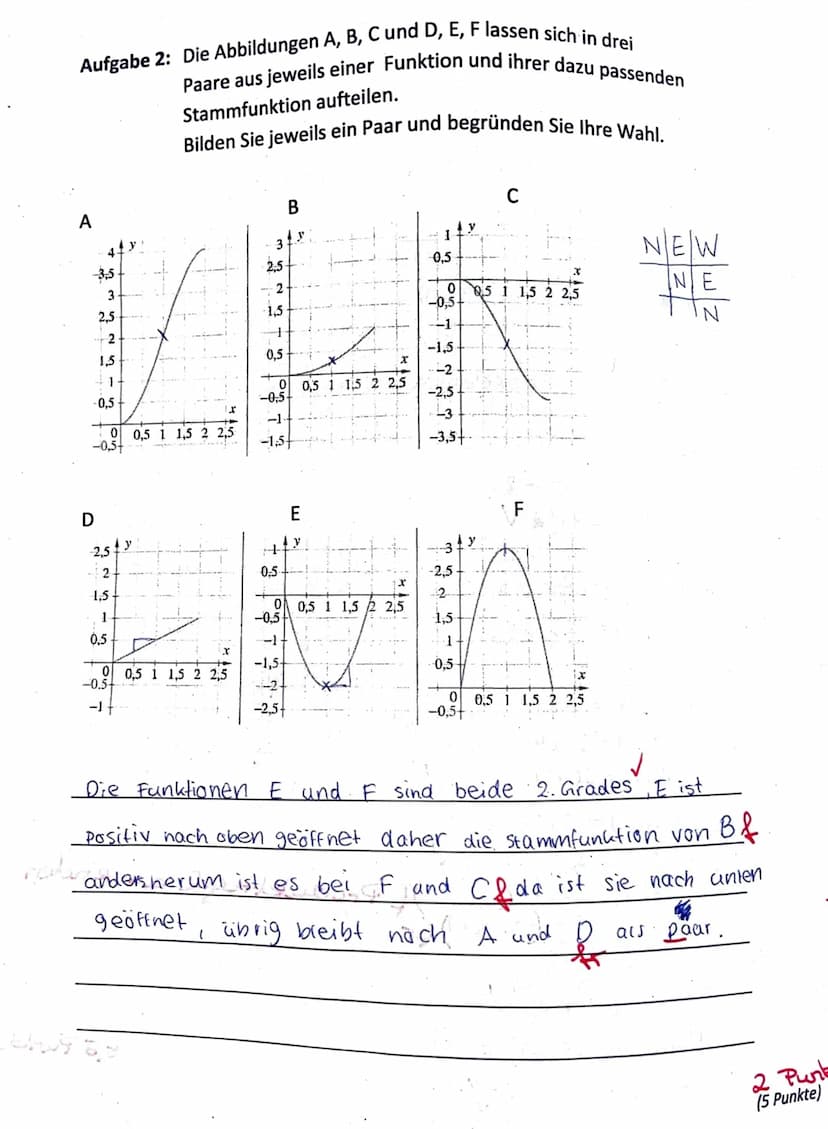 Aufgabe 2: Die Abbildungen A, B, C und D, E, F lassen sich in drei
Paare aus jeweils einer Funktion und ihrer dazu passenden
Stammfunktion aufteilen.
Bilden Sie jeweils ein Paar und begründen Sie Ihre Wahl.
A
4 y
3,5
3
2,5
2
1,5
1
0,5
x
0 0,5 1 1,5 2 2,5
-0,5
B
3 y
2,5
2
1,5
1
0,5
x
0 0,5 1 1,5 2 2,5
-0,5
-1
-1,5
C
1 y
0,5
x
0 0,5 1 1,5 2 2,5
-0,5
-1
-1,5
-2
-2,5
-3
-3,5
N E W
N E
N
D
2,5 y
2
1,5
1
0,5
x
0 0,5 1 1,5 2 2,5
-0,5
-1
E
1 y
0,5
x
0 0,5 1 1,5 2 2,5
-0,5
-1
-1,5
-2
-2,5
F
3 y
2,5
2
1,5
1
0,5
x
0 0,5 1 1,5 2 2,5
-0,5
Die Funktionen E und F sind beide 2. Grades ✓, E ist
positiv nach oben geöffnet daher die stammfunktion von B f
andersherum ist es bei F und C f da ist sie nach unten
geöffnet, übrig bleibt noch A und D als paar.
fr
2 Punkt
(5 Punkte)